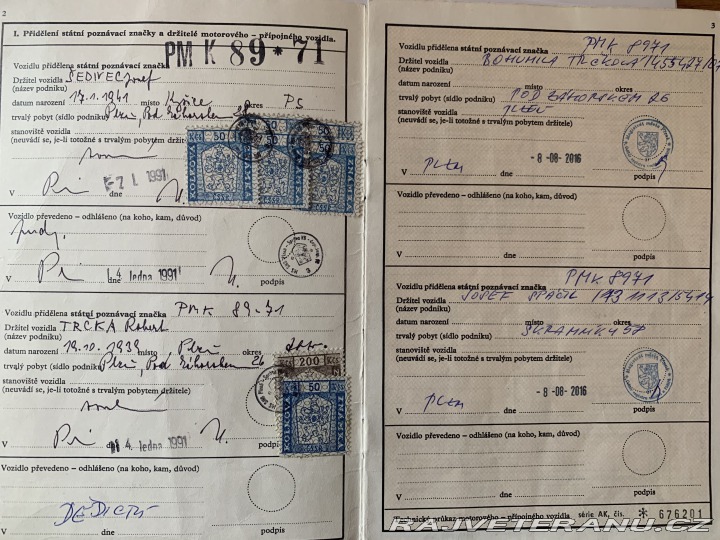 2
I. Přidělení státní poznávací značky a držitelé motorového – přípojného vozidla.
PM K 89*71
Vozidlu přidělena státní poznávací značka
Držitel vozidla ŠEDIVEC Josef
(název podniku)
datum narození 17.1.1941 místo okres PS
trvalý pobyt (sídlo podniku) Plzeň, Pod Záhorskem 26
stanoviště vozidla
(neuvádí se, je-li totožné s trvalým pobytem držitele)
V dne 1991 podpis
Vozidlo převedeno – odhlášeno (na koho, kam, důvod)
V dne 4. ledna 1991 podpis
Vozidlu přidělena státní poznávací značka PMK 89-71
Držitel vozidla TRČKA Robert
(název podniku)
datum narození 19.10.1939 místo Plzeň okres
trvalý pobyt (sídlo podniku) Plzeň, Pod Záhorskem 26
stanoviště vozidla
(neuvádí se, je-li totožné s trvalým pobytem držitele)
V dne 4. ledna 1991 podpis
Vozidlo převedeno – odhlášeno (na koho, kam, důvod)
DĚDICTV
V dne podpis
50 Kčs
KOLKOVÁ ZNÁMKA
200 Kčs
50
KOLKOVÁ ZNÁMKA
3
Vozidlu přidělena státní poznávací značka PMK 8971
Držitel vozidla BOHUMILA TRČKOVÁ
(název podniku)
datum narození místo okres
trvalý pobyt (sídlo podniku) POD ZÁHORSKEM 26
stanoviště vozidla PLZEŇ
(neuvádí se, je-li totožné s trvalým pobytem držitele)
V PLZEŇ dne -8-08-2016 podpis
Vozidlo převedeno – odhlášeno (na koho, kam, důvod)
V dne podpis
Vozidlu přidělena státní poznávací značka PMK 8971
Držitel vozidla JOSEF SPÁČIL
(název podniku)
datum narození místo okres
trvalý pobyt (sídlo podniku) SKRAMNÍKY 57
stanoviště vozidla
(neuvádí se, je-li totožné s trvalým pobytem držitele)
V PLZEŇ dne -8-08-2016 podpis
Vozidlo převedeno – odhlášeno (na koho, kam, důvod)
V dne podpis
Technický průkaz motorového – přípojného vozidla série AK, čís. * 676201
RAJVETERANU.CZ